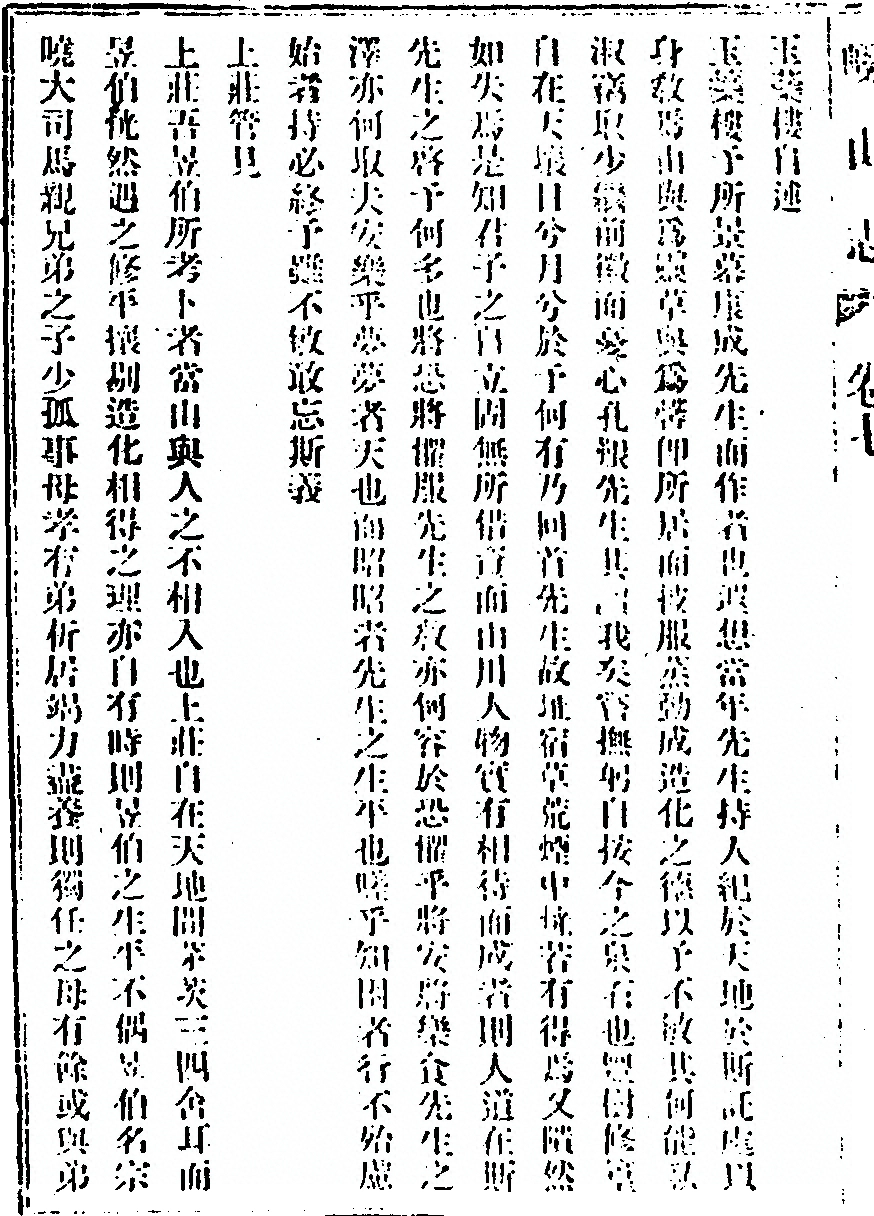 嶗山志 卷七
玉蘂樓自述
玉蘂樓予所景慕康成先生而作者也遐想當年先生持人紀於天地於斯託處以
身敎焉山與爲靈草與爲馨卽所居而被服蒸動成造化之德以予不敏其何能私
淑竊取少繼前徽而憂心孔艱先生其詔我矣嘗撫躬自按今之泉石也壘樹修篁
自在天壤日兮月兮於予何有乃回首先生故址宿草荒煙中恍若有得焉又隤然
如失焉是知君子之自立固無所借資而山川人物實有相待而成者則人道在斯
先生之啓予何多也將恐將懼服先生之敎亦何容於恐懼乎將安將樂食先生之
澤亦何取夫安樂乎夢夢者天也而昭昭者先生之生平也嗟乎知困者行不殆慮
始者持必終予雖不敏敢忘斯義
上莊管見
上莊吾昱伯所考卜者當山與人之不相入也上莊自在天地間茅茨三四舍耳而
昱伯恍然遇之修平攘剔造化相得之理亦自有時則昱伯之生平不偶昱伯名宗
曉大司馬親兄弟之子少孤事母孝有弟析居竭力盡養則獨任之母有餘或與弟